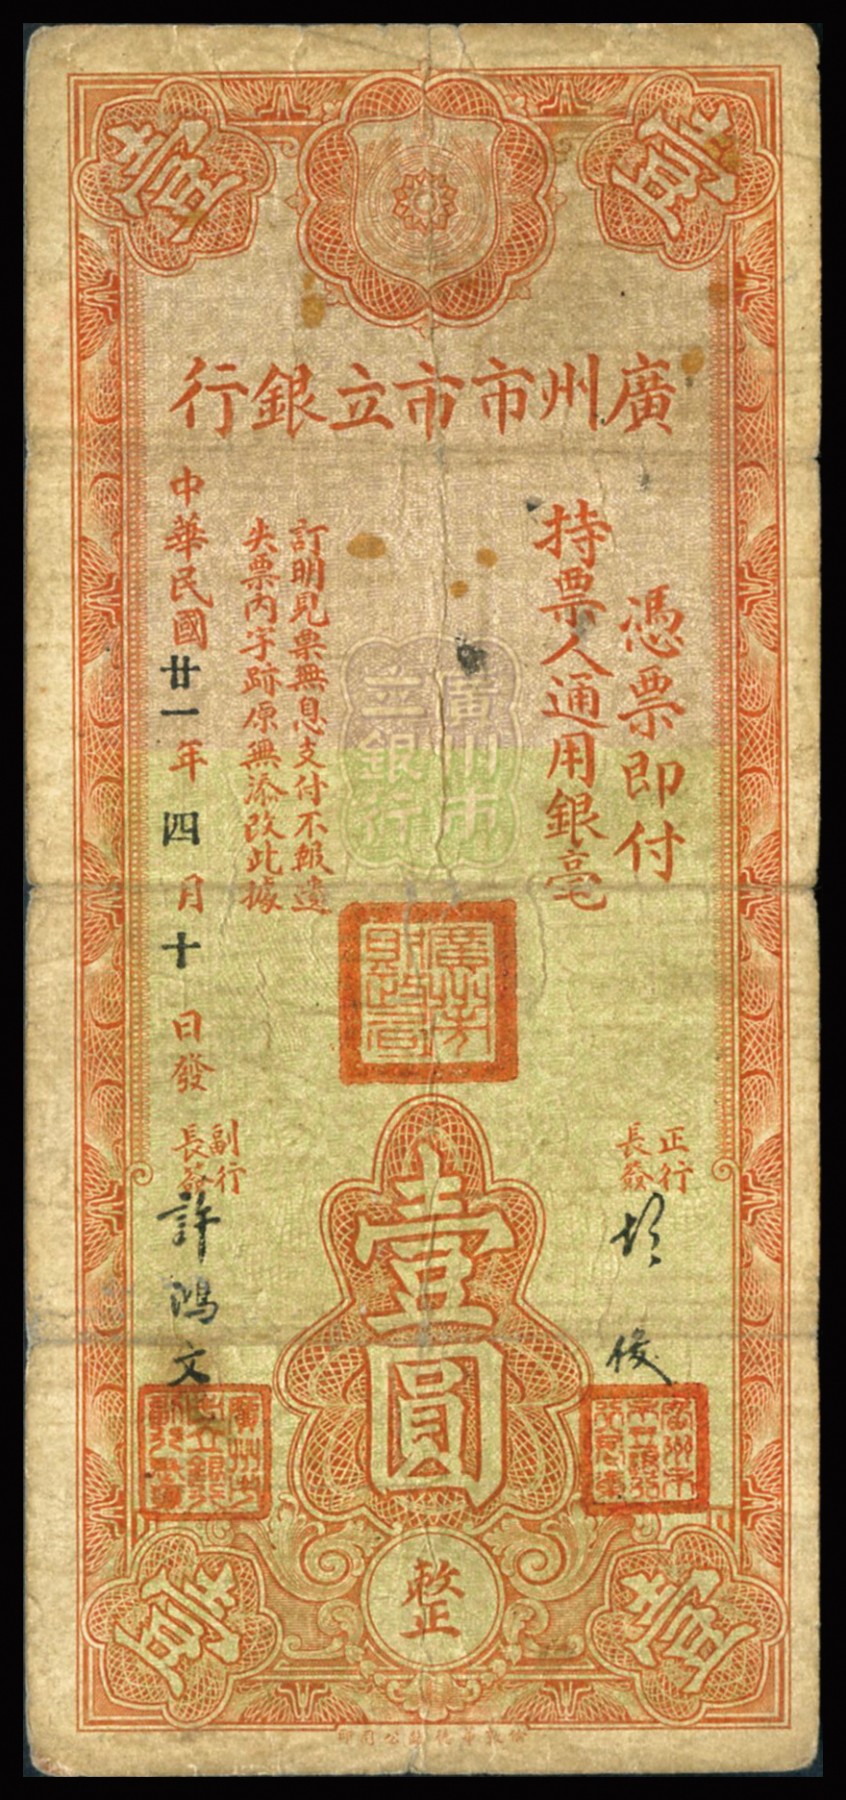 壹
壹
廣州市市立銀行
憑票即付
持票人通用銀毫
廣州市
立銀行
訂明見票無息支付不報遺
失票內字跡原無添改此據
中華民國廿一年四月十日發
廣州市
財政局
正行
長簽
副行
長簽
許鴻文
壹圓
整
廣州市
市立銀行
壹
壹